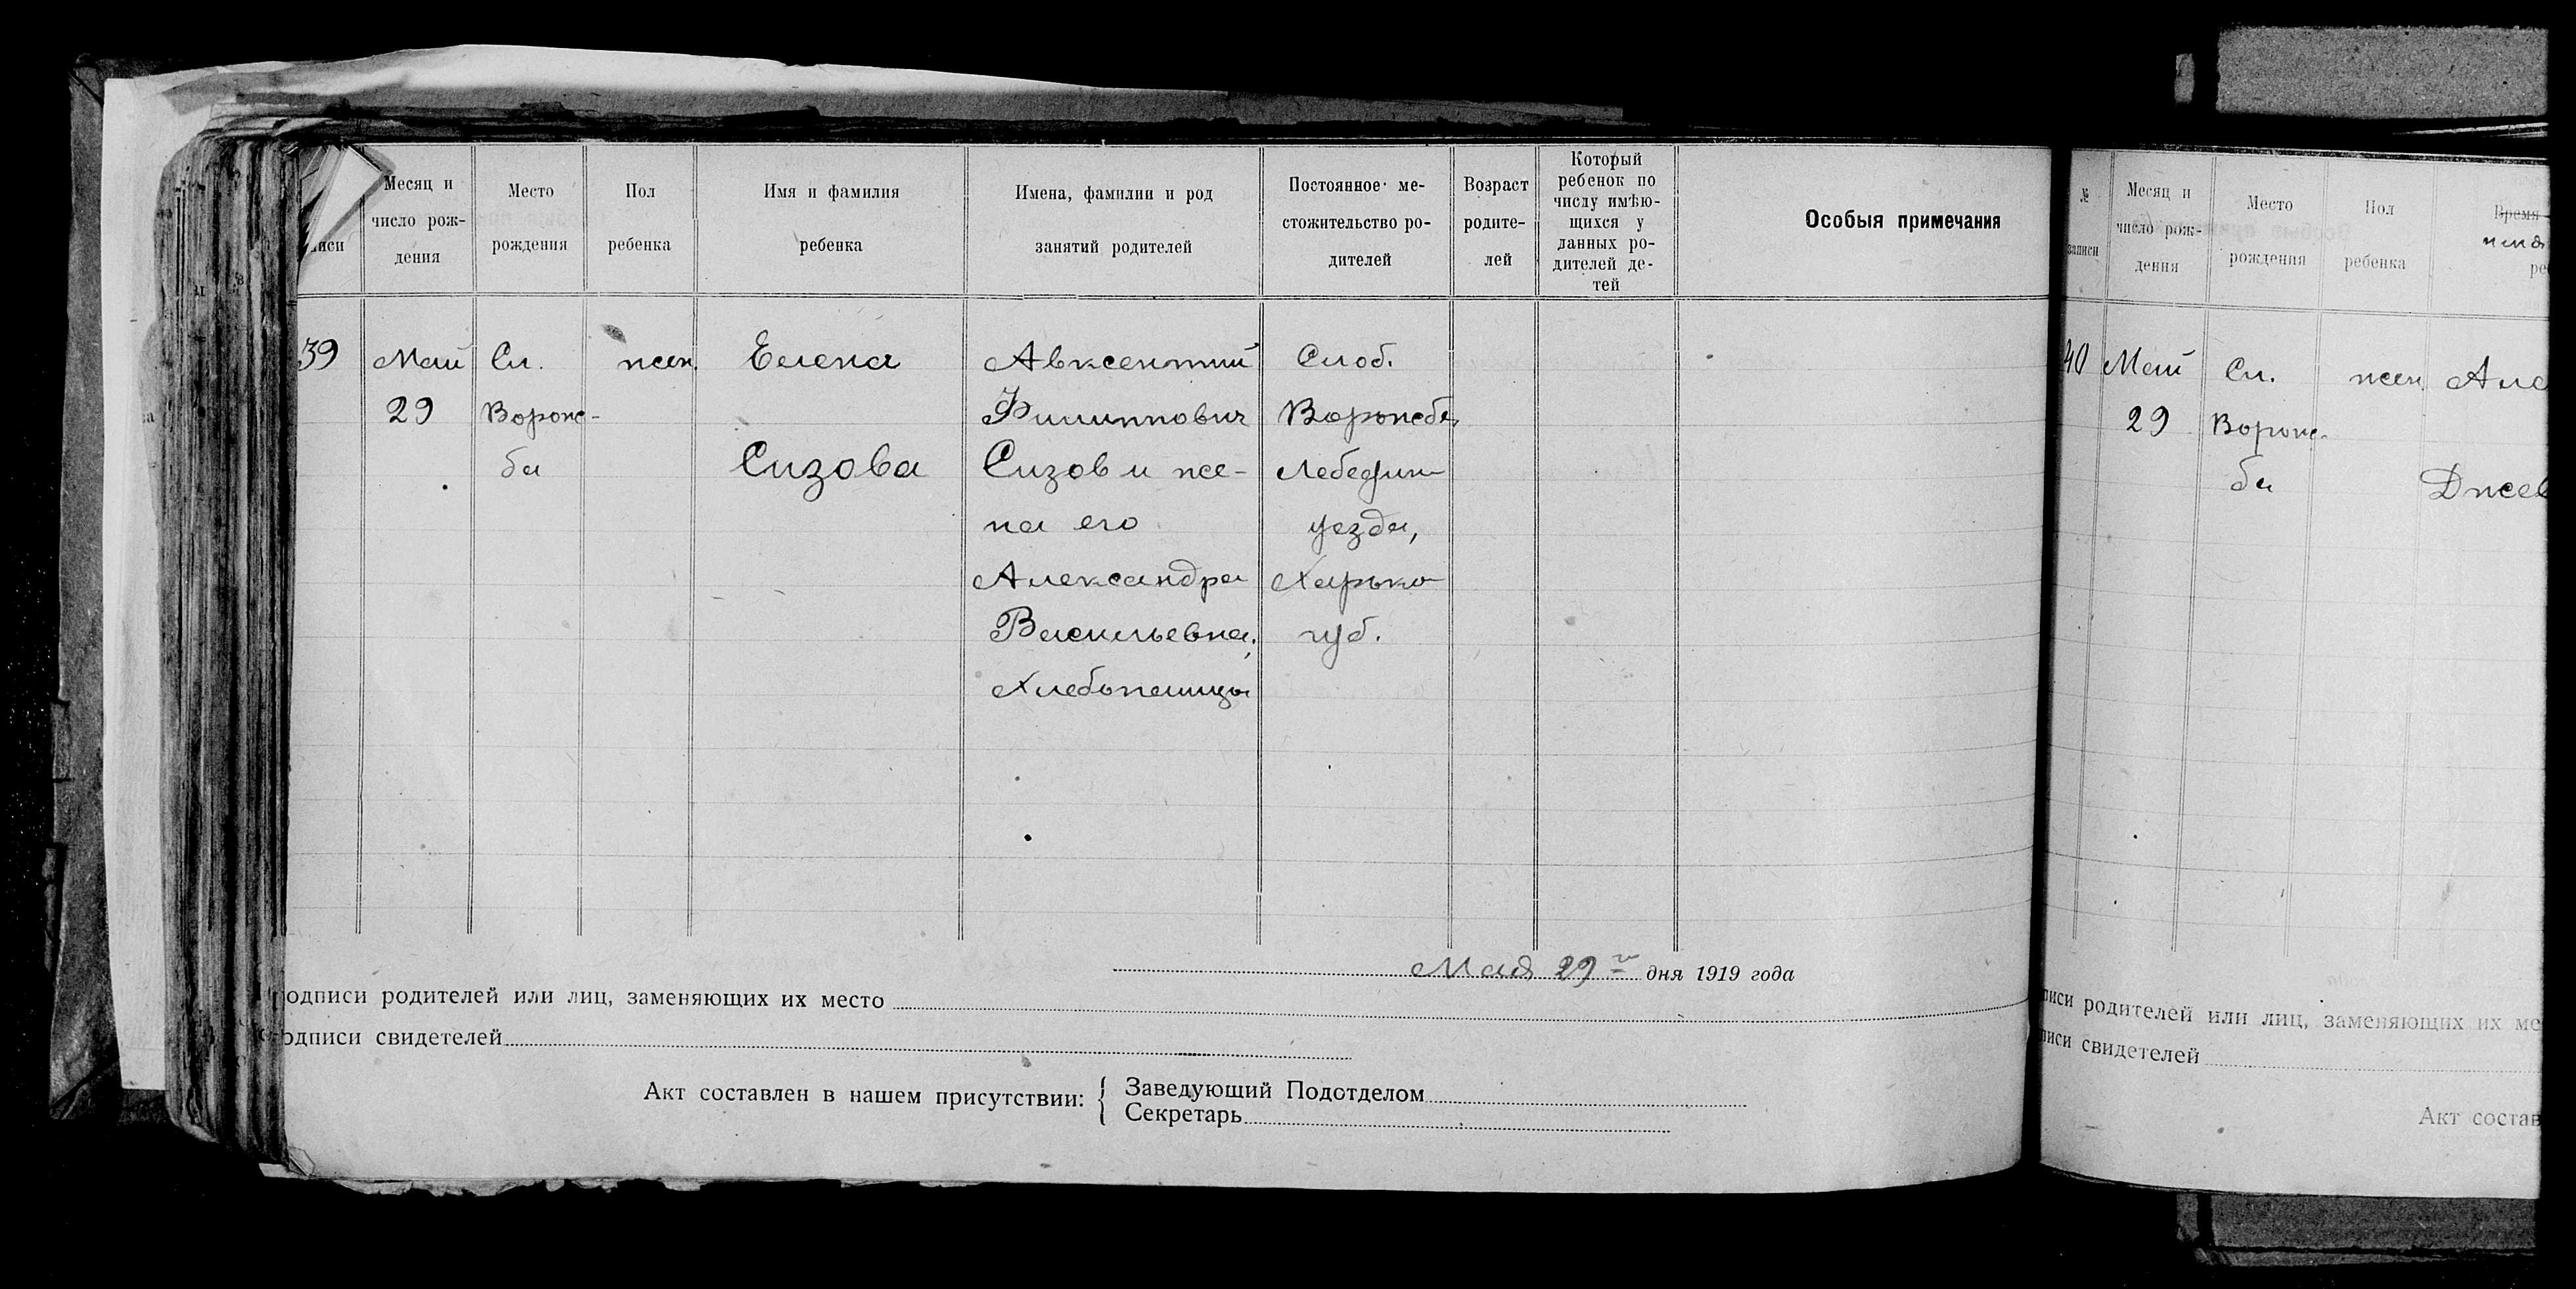 иси
Месяц и
число рож-
дения
Место
рождения
Пол
ребенка
Имя и фамилия
ребенка
Имена, фамилии и род
занятий родителей
Постоянное ме-
стожительство ро-
дителей
Возраст
родите-
лей
Который
ребенок по
числу имѣю-
щихся у
данных ро-
дителей де-
тей
Особыя примечания
39
Май
29
Сл.
Ворож-
ба
жен.
Елена
Сизова
Авксентий
Филиппович
Сизов и же-
на его
Александра
Васильевна,
Хлебопашцы
Слоб.
Ворожба,
Лебедин
уезда,
Харько
губ.
Мая 29го дня 1919 года
одписи родителей или лиц, заменяющих их место
одписи свидетелей
Акт составлен в нашем присутствии:
Заведующий Подотделом
Секретарь
№
записи
Месяц и
число рож-
дения
Место
рождения
Пол
ребенка
Время
ре
40
Май
29
Сл.
Ворож-
ба
жен
Але
Джев
писи родителей или лиц, заменяющих их ме
писи свидетелей
Акт состав